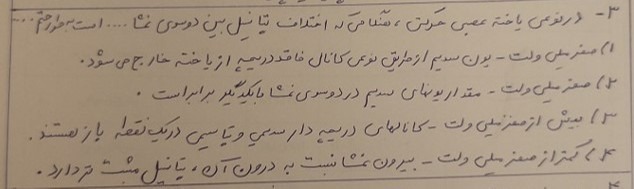 ۳- در نوعی یاخته عصبی حرکتی، هنگامی که اختلاف پتانسیل بین دو سوی غشا .... است به طور حتم ....
۱) صفر میلی ولت - یون سدیم از طریق نوعی کانال فاقد دریچه از یاخته خارج می شود.
۲) صفر میلی ولت - مقدار یونهای سدیم در دو سوی غشا با یکدیگر برابر است.
۳) بیش از صفر میلی ولت - کانالهای دریچه دار سدیمی و پتاسیمی در یک نقطه باز هستند.
۴) کمتر از صفر میلی ولت - بیرون غشا نسبت به درون آن، پتانسیل مثبت تر دارد.